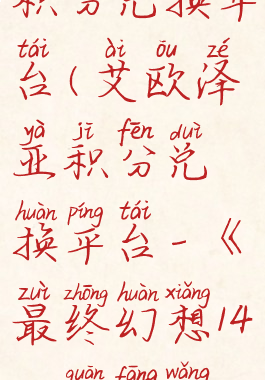 积分兑换平
tái ài ōu zé
台(艾欧泽
yà jī fēn duì
亚积分兑
huàn píng tái
换平台-《
zuì zhōng huàn xiǎng
最终幻想14
guān fāng wǎng